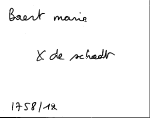 Baert marie
x de schodt
1758/12